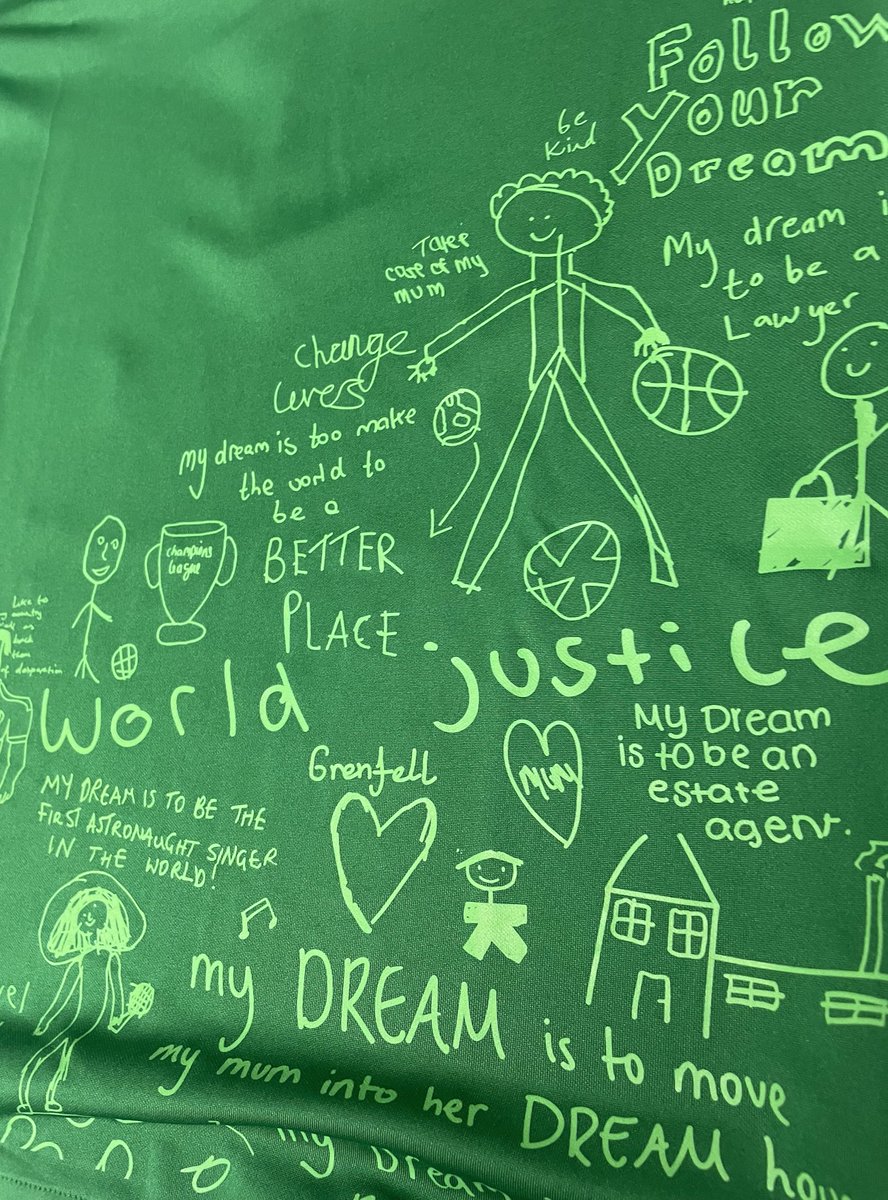 Follow
Your
Dream
be
kind
Take
care of my
mum
My dream i
to be a
Lawyer
Change
lives
my dream is too make
the world to
be a
BETTER
PLACE
champions
league
Like to
them
of desperation
World justice
Grenfell
MUM
My Dream
is to be an
estate
agent.
MY DREAM IS TO BE THE
FIRST ASTRONAUGHT SINGER
IN THE WORLD!
vel
my DREAM is to move
my mum into her DREAM hou
my Dream